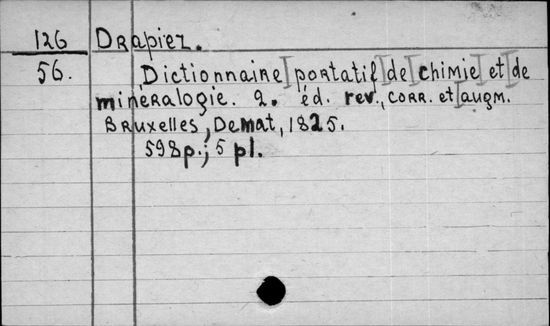 126 Drapiez.
56. Dictionnaire portatif de chimie et de
mineralogie. 2. éd. rev., corr. et augm.
Bruxelles, Demat, 1825.
598p.; 5 pl.